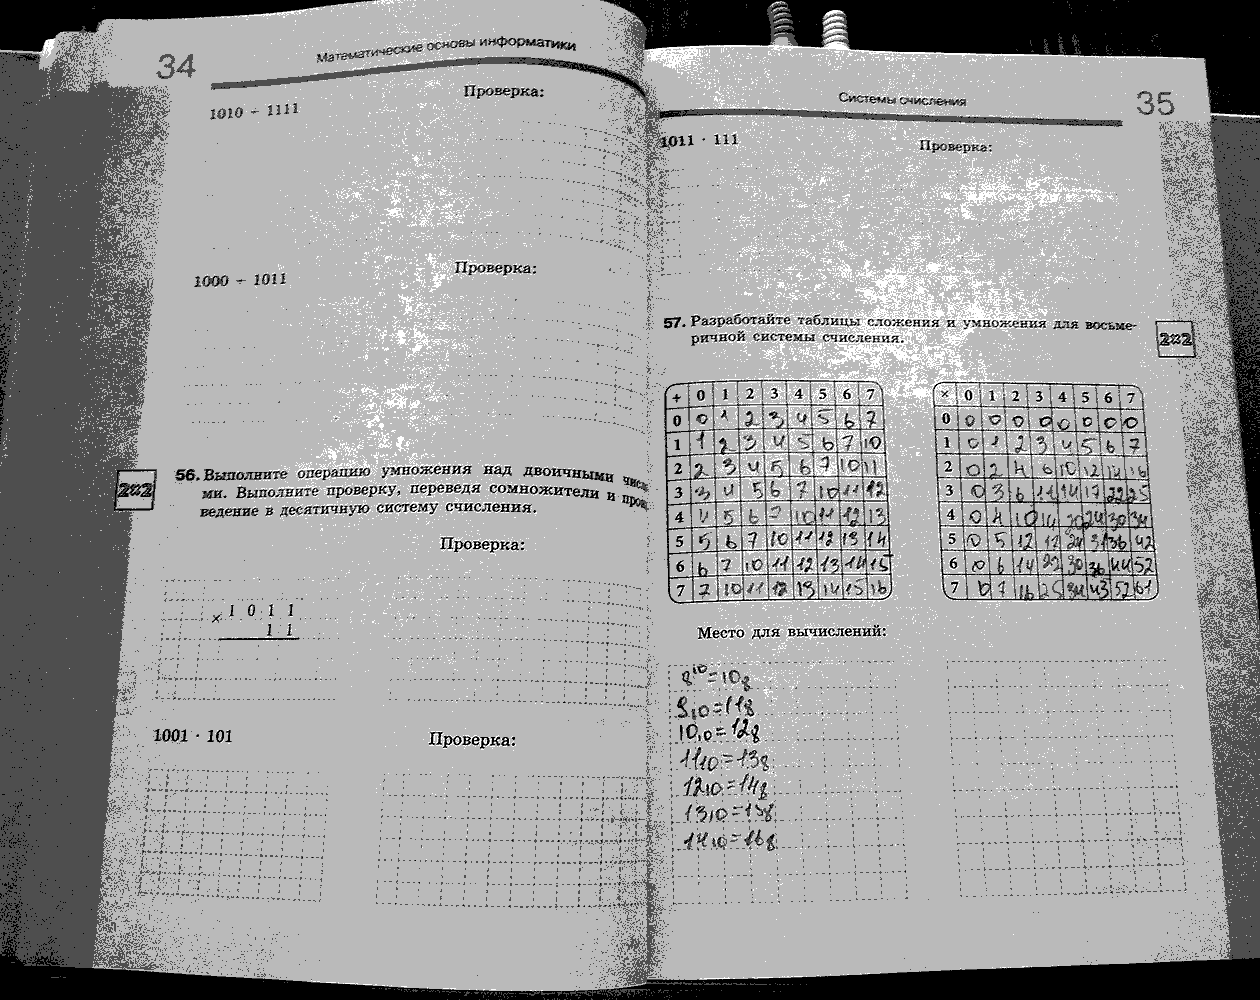 34
Математические основы информатики
1010 + 1111
Проверка:
1000 + 1011
Проверка:
56. Выполните операцию умножения над двоичными числа-
ми. Выполните проверку, переведя сомножители и произ-
ведение в десятичную систему счисления.
Проверка:
× 1 0 1 1
1 1
1001 · 101
Проверка:
Системы счисления
35
1011 · 111
Проверка:
57. Разработайте таблицы сложения и умножения для восьме-
ричной системы счисления.
+ 0 1 2 3 4 5 6 7
0 0 1 2 3 4 5 6 7
1 1 2 3 4 5 6 7 10
2 2 3 4 5 6 7 10 11
3 3 4 5 6 7 10 11 12
4 4 5 6 7 10 11 12 13
5 5 6 7 10 11 12 13 14
6 6 7 10 11 12 13 14 15
7 7 10 11 12 13 14 15 16
× 0 1 2 3 4 5 6 7
0 0 0 0 0 0 0 0 0
1 0 1 2 3 4 5 6 7
2 0 2 4 6 10 12 14 16
3 0 3 6 11 14 17 22 25
4 0 4 10 14 20 24 30 34
5 0 5 12 17 24 31 36 42
6 0 6 14 22 30 36 44 52
7 0 7 16 25 34 43 52 61
Место для вычислений:
8₁₀=10₈
9₁₀=11₈
10₁₀=12₈
11₁₀=13₈
12₁₀=14₈
13₁₀=15₈
14₁₀=16₈